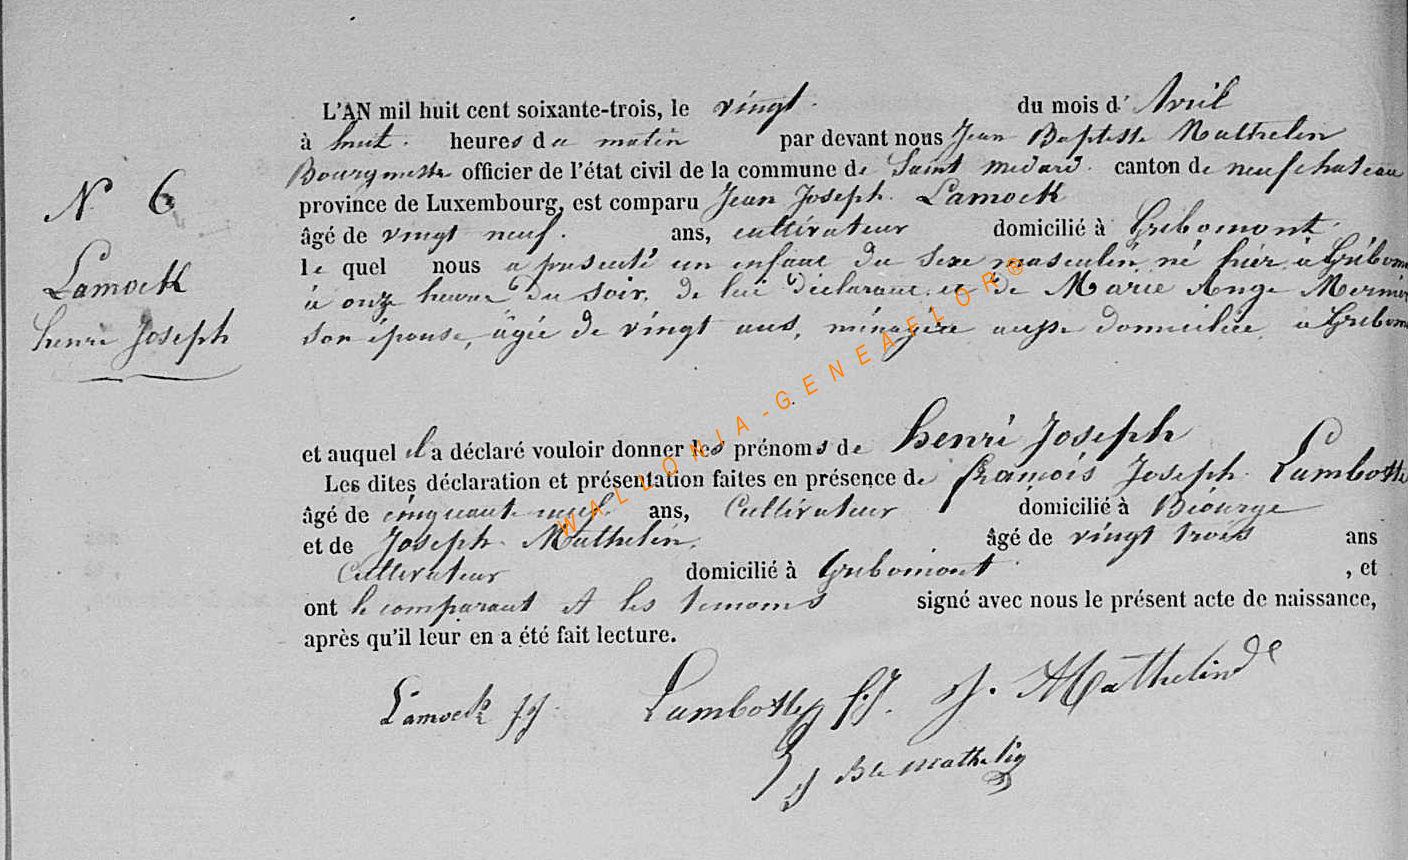 L'AN mil huit cent soixante-trois, le vingt du mois d' Avril
à huit heures du matin par devant nous Jean Baptiste Mathelin
Bourgmestre officier de l'état civil de la commune de Saint Medard canton de neufchateau
province de Luxembourg, est comparu Jean Joseph Lamock
âgé de vingt neuf ans, cultivateur domicilié à Gribomont
N 6
le quel nous a présenté un enfant du sexe masculin, né hier à Gribom
Lamock
à onze heures du soir, de lui déclarant et de Marie Ange
henri Joseph
son épouse, âgée de vingt ans, ménagère aussi domiciliée à Gribom
et auquel il a déclaré vouloir donner les prénoms de henri Joseph
Les dites déclaration et présentation faites en présence de françois Joseph Lambotte
âgé de cinquante neuf ans, Cultivateur domicilié à Biourge
et de Joseph Mathelin, âgé de vingt trois ans
Cultivateur domicilié à Gribomont , et
ont le comparant et les temoins signé avec nous le présent acte de naissance,
après qu'il leur en a été fait lecture.
Lamock JJ Lambotte f.J. J. Mathelin
J Bte mathelin
WALLONIA-GENEAFLOR®